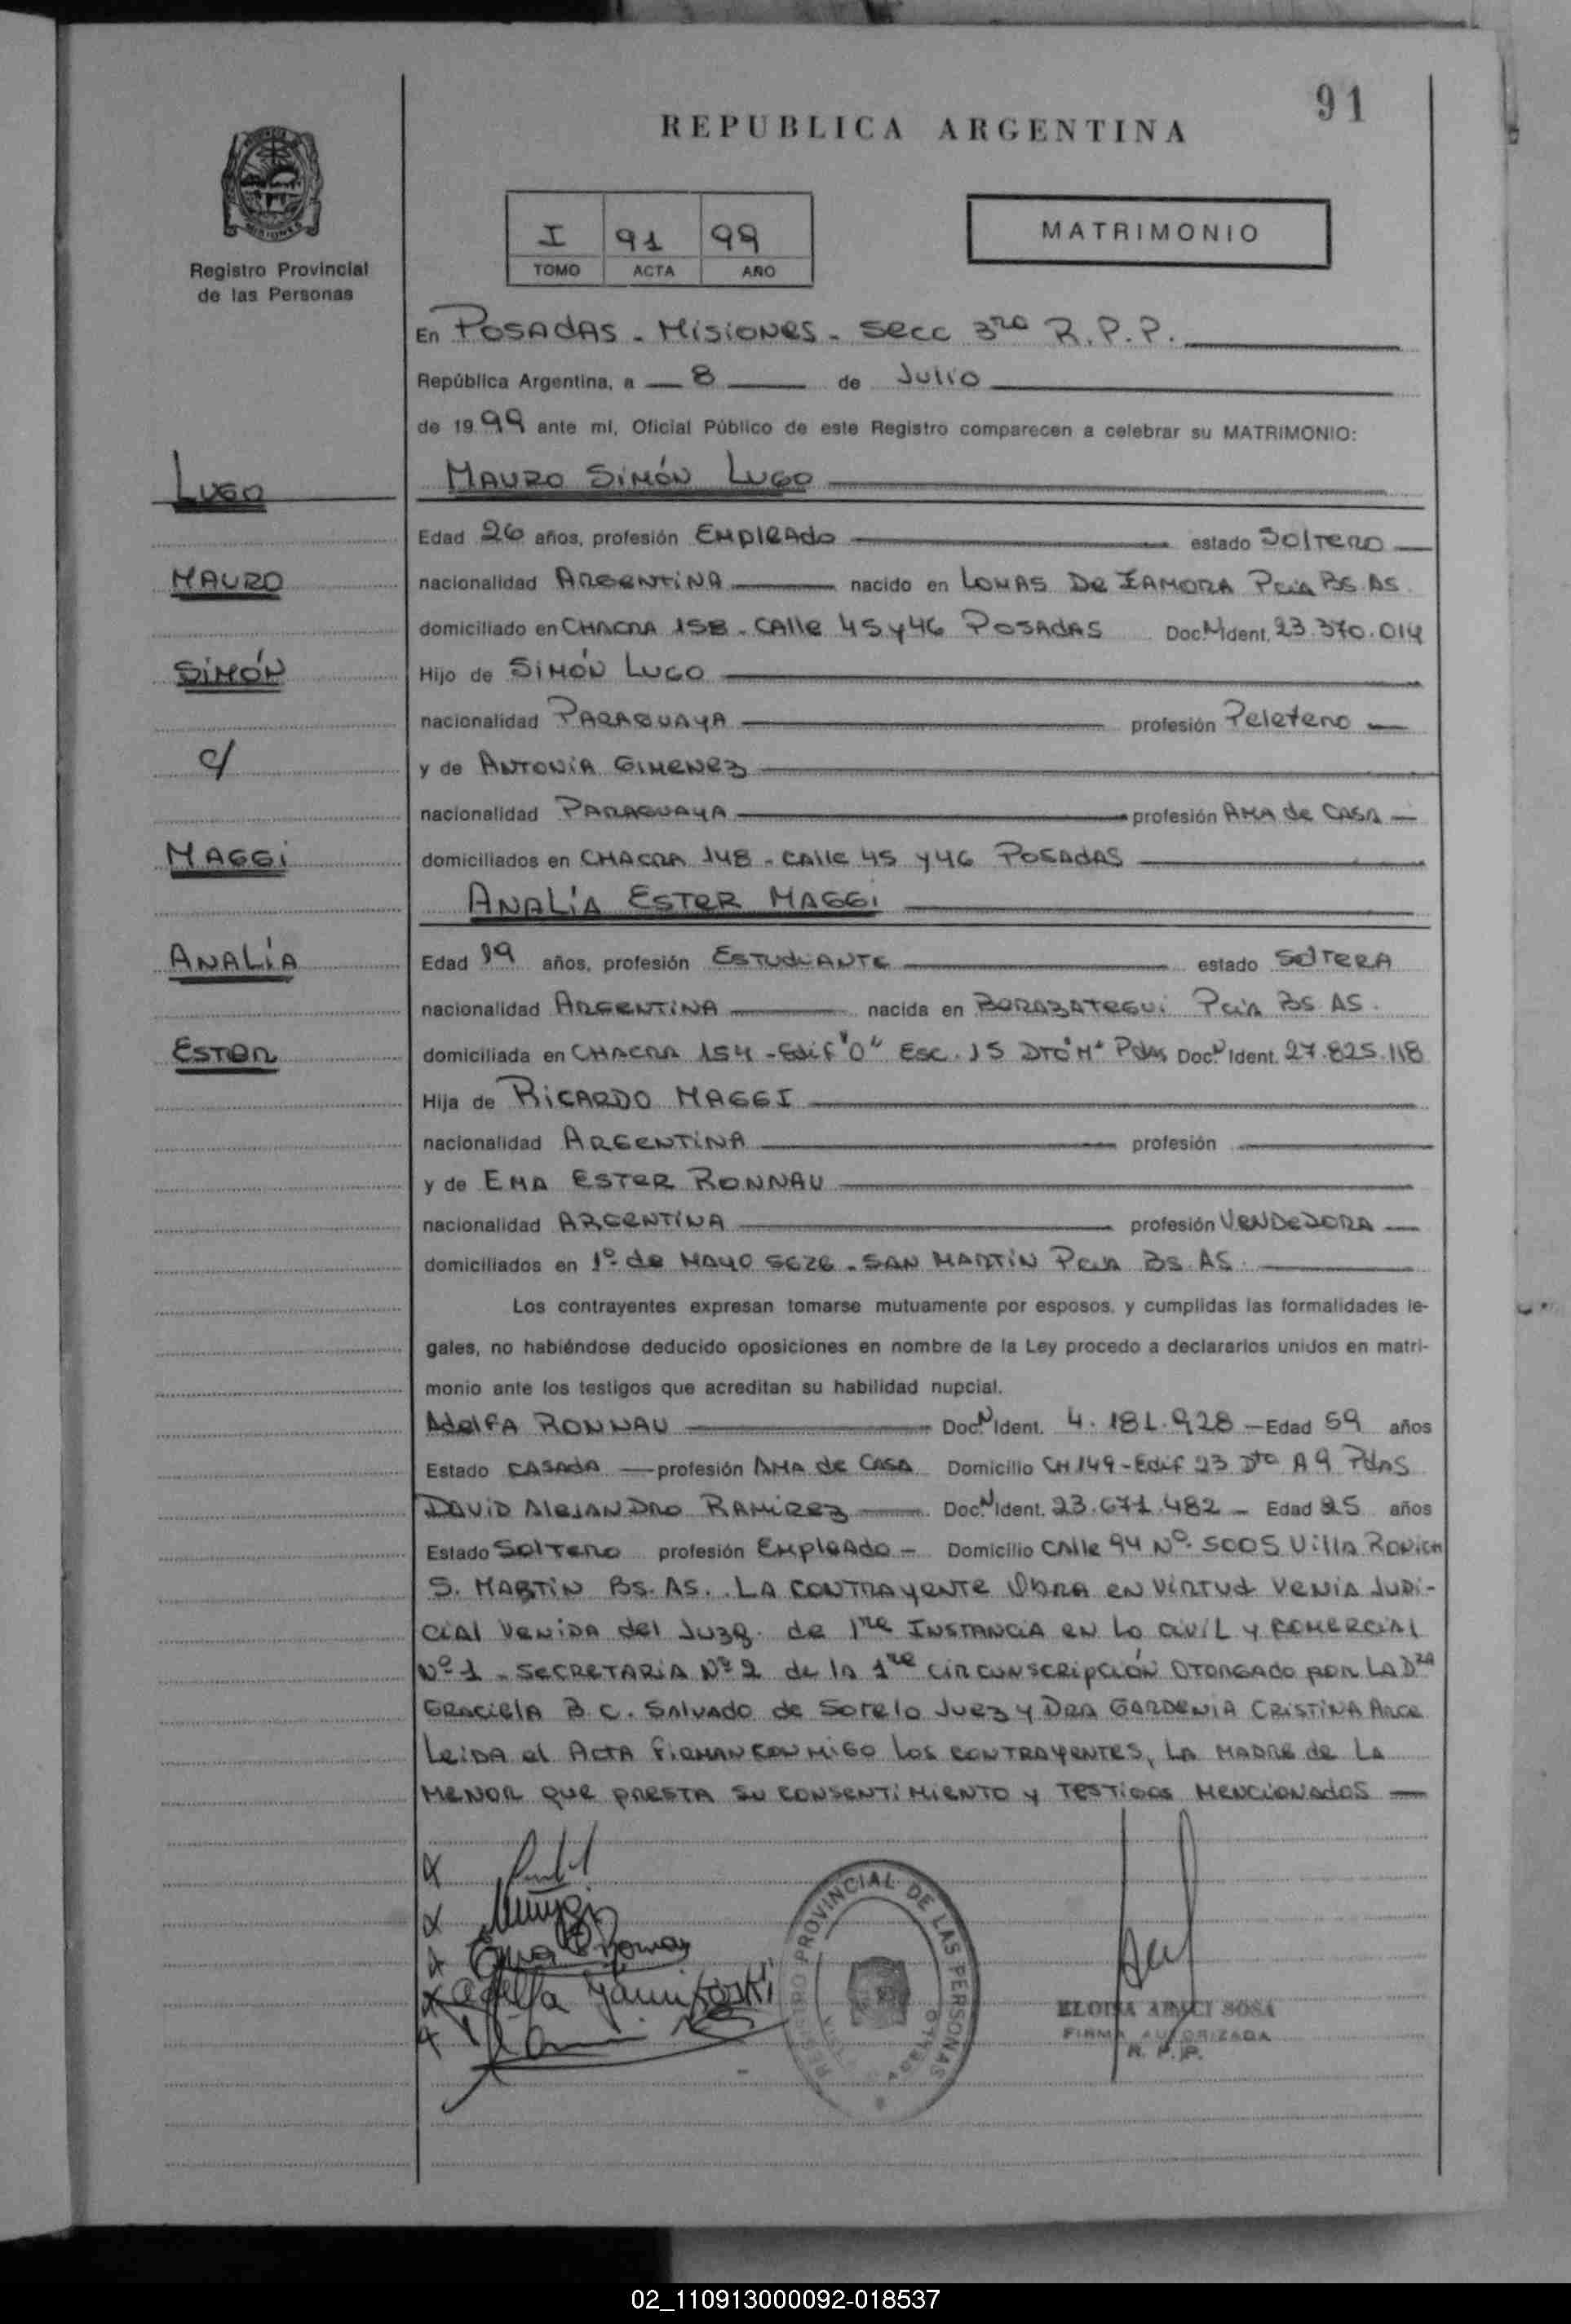 91
REPUBLICA ARGENTINA
MISIONES
Registro Provincial
de las Personas
I 91 99
TOMO ACTA AÑO
MATRIMONIO
En POSADAS - MISIONES - SECC 3ra R.P.P.
República Argentina, a 8 de Julio
de 1999 ante mí, Oficial Público de este Registro comparecen a celebrar su MATRIMONIO:
LUGO
MAURO SIMÓN LUGO
Edad 26 años, profesión EMPLEADO estado SOLTERO
MAURO
nacionalidad ARGENTINA nacido en LOMAS DE ZAMORA Pcia BS. AS.
domiciliado en CHACRA 158 - CALLE 45 y 46 POSADAS Doc. N Ident. 23.370.014
SIMÓN
Hijo de SIMÓN LUGO
nacionalidad PARAGUAYA profesión Peletero
c/
y de ANTONIA GIMENEZ
nacionalidad PARAGUAYA profesión AMA de CASA
MAGGI
domiciliados en CHACRA 148 - CALLE 45 y 46 POSADAS
ANALÍA ESTER MAGGI
ANALÍA
Edad 19 años, profesión ESTUDIANTE estado SOLTERA
nacionalidad ARGENTINA nacida en BERAZATEGUI Pcia BS AS.
ESTER
domiciliada en CHACRA 154 - Edif "O" Esc. 15 DTO "M" Pdas Doc. N Ident. 27.825.118
Hija de RICARDO MAGGI
nacionalidad ARGENTINA profesión
y de EMA ESTER RONNAU
nacionalidad ARGENTINA profesión VENDEDORA
domiciliados en 1º de MAYO 5626 - SAN MARTIN Pcia BS. AS.
Los contrayentes expresan tomarse mutuamente por esposos, y cumplidas las formalidades le-
gales, no habiéndose deducido oposiciones en nombre de la Ley procedo a declararlos unidos en matri-
monio ante los testigos que acreditan su habilidad nupcial.
AdelFA RONNAU Doc. N Ident. 4.181.928 - Edad 59 años
Estado CASADA profesión AMA de CASA Domicilio CH 149 - Edif 23 Dto A 9 Pdas
DAVID ALEJANDRO RAMIREZ Doc. N Ident. 23.671.482 - Edad 25 años
Estado SOLTERO profesión EMPLEADO - Domicilio CALLE 94 Nº 5005 Villa
S. MARTIN BS. AS. LA CONTRAYENTE OBRA EN VIRTUD VENIA JUDI-
CIAL VENIDA del JUZG. de 1ra INSTANCIA EN LO CIVIL Y COMERCIAL
Nº 1 - SECRETARIA Nº 2 de la 1ra CIRCUNSCRIPCIÓN OTORGADO POR LA Dra
GRACIELA B. C. SALVADO de Sotelo JUEZ y DRA GARDENIA CRISTINA Arce
LEIDA el ACTA FIRMAN CONMIGO LOS CONTRAYENTES, LA MADRE de LA
MENOR QUE PRESTA SU CONSENTIMIENTO y TESTIGOS MENCIONADOS
REGISTRO PROVINCIAL DE LAS PERSONAS
FIRMA AUTORIZADA
R. P. P.
02_110913000092-018537